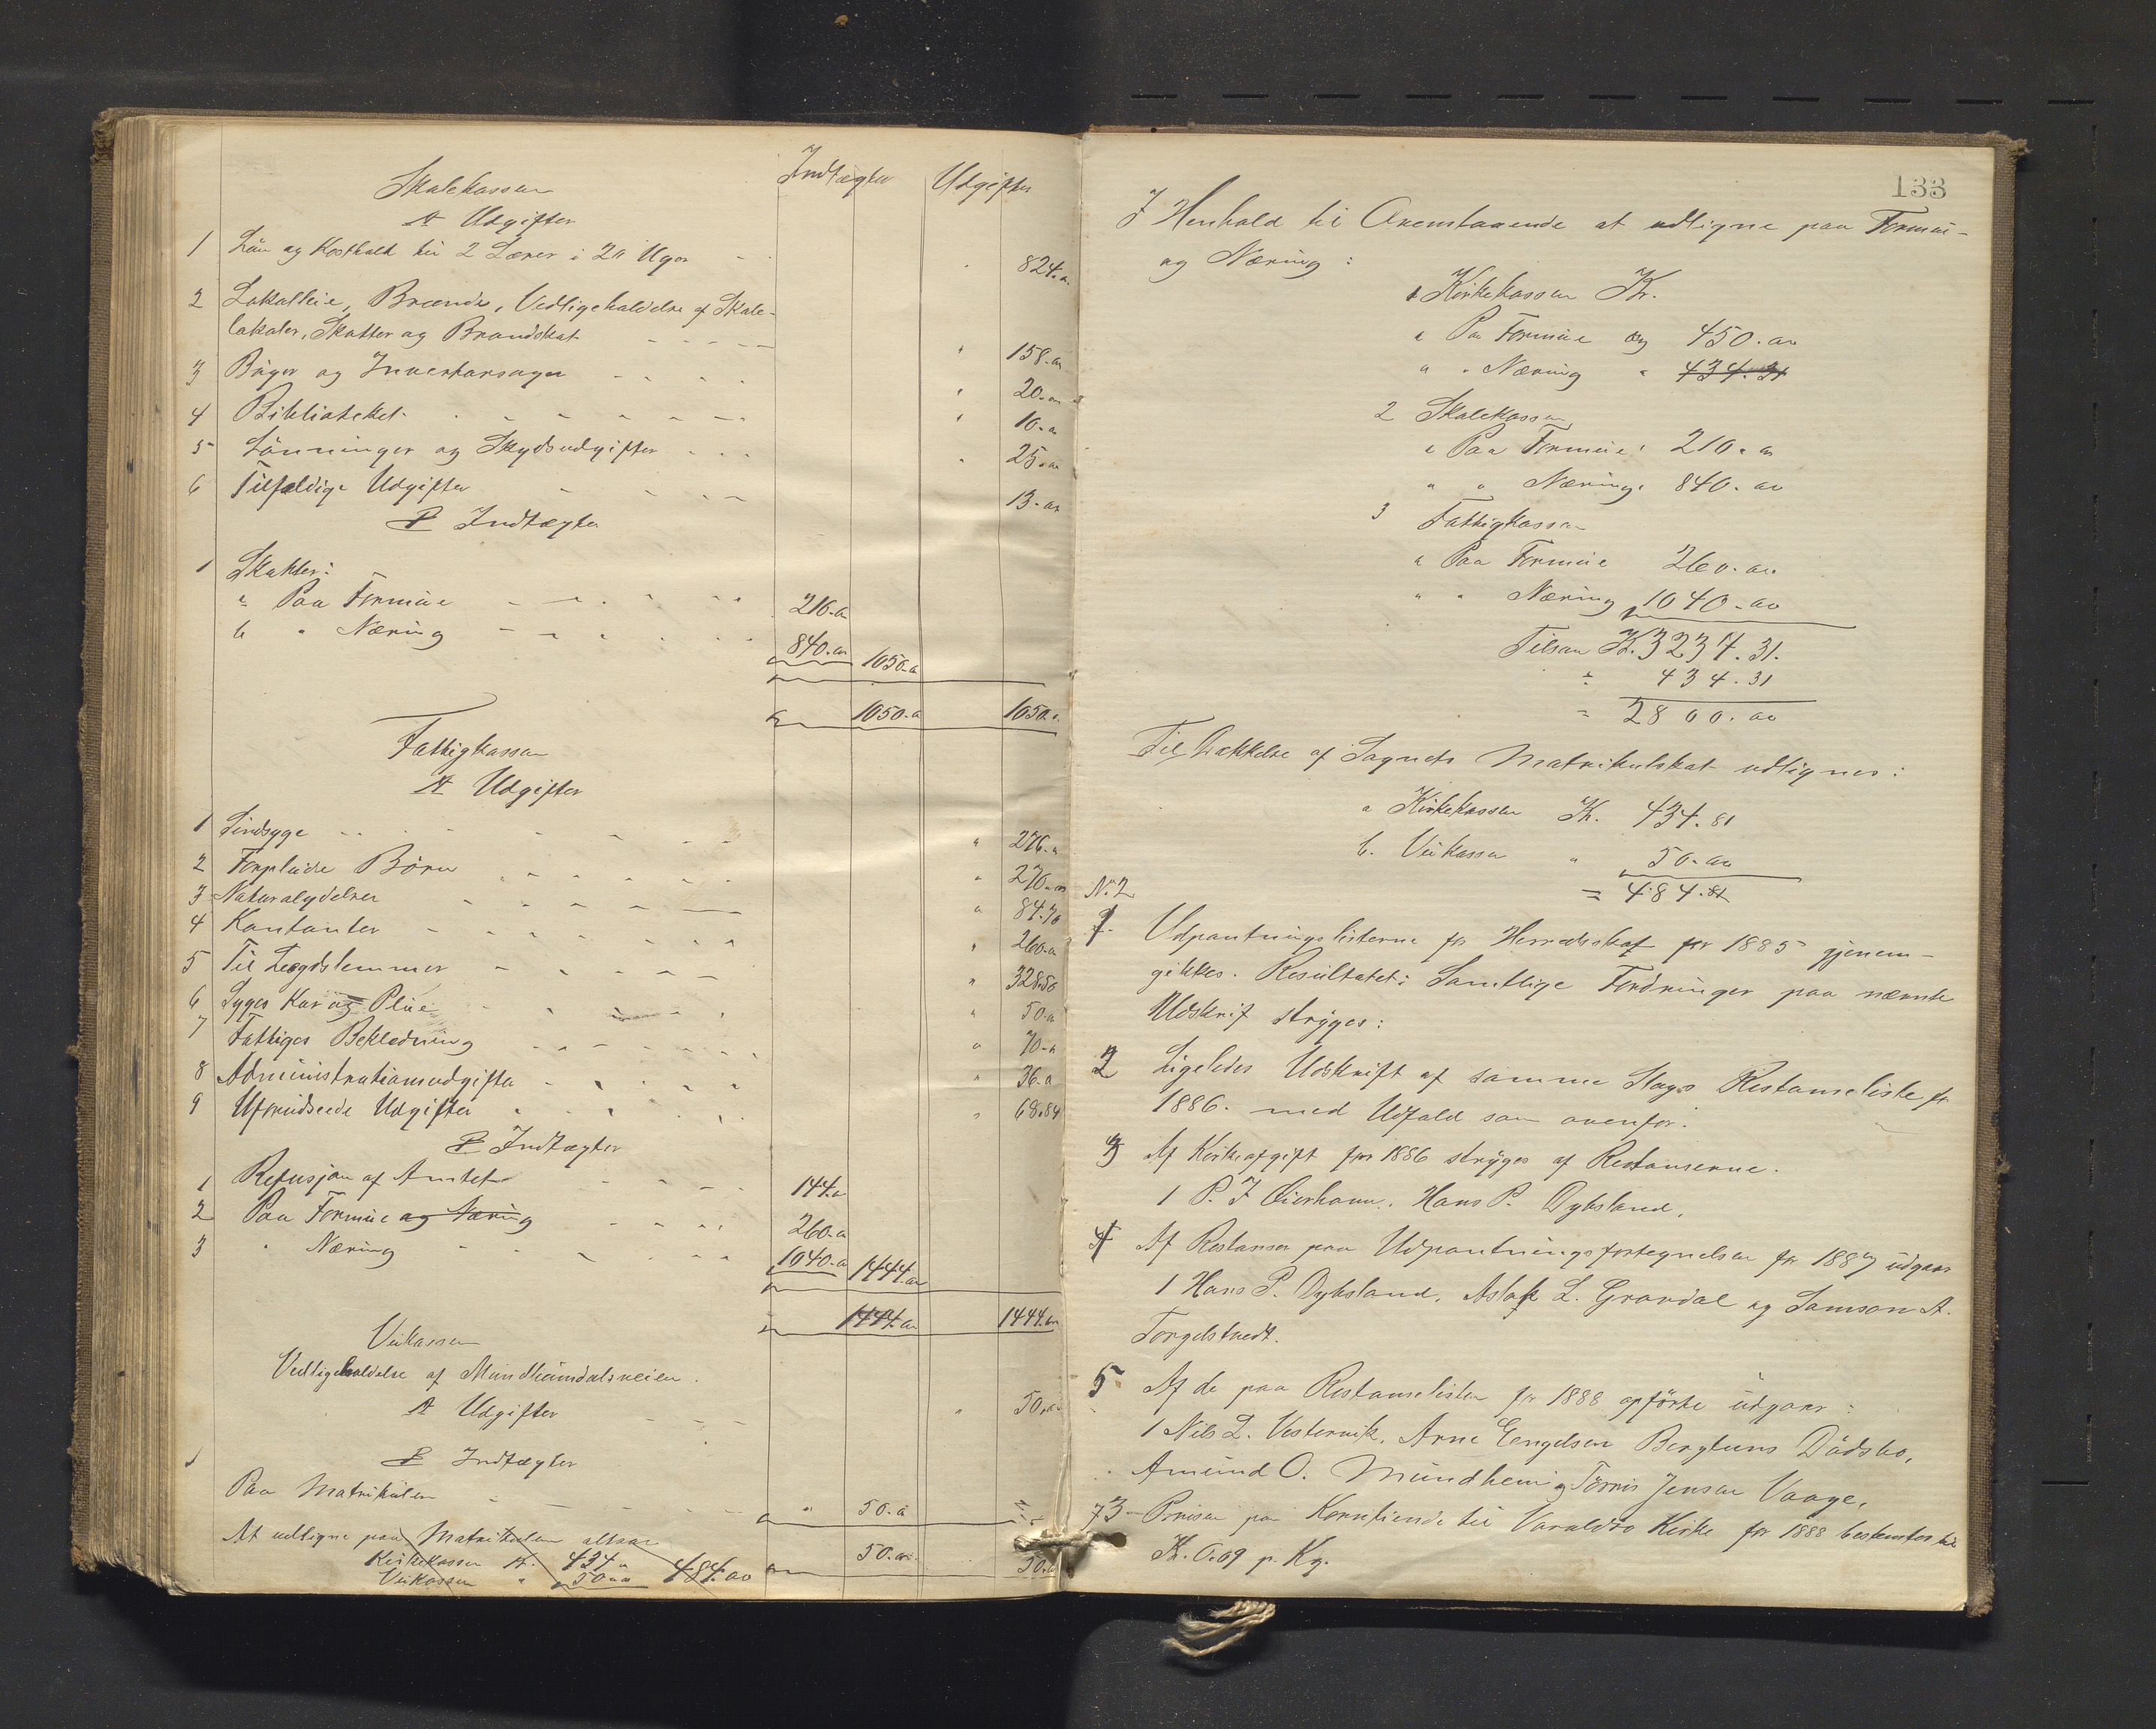 Indtægter Udgifter
Skolekassen
A Udgifter
1 Løn og Kosthold til 2 Lærer i 20 Uger - 824.00
2 Lokalleie, Brænde, Vedligeholdelse af Skole-
lokaler, Skatter og Brandskat - - - - - " 158.00
3 Bøger og Inventarsager - - - - " 20.00
4 Bibliotheket - - - - - - " 10.00
5 Lønninger og Skydsudgifter - - - " 25.00
6 Tilfældige Udgifter - - - - 13.00
B Indtægter
1 Skatter:
a Paa Formue - - - - - - 210.00
b " Næring - - - - - - 840.00 1050.00
1050.00 1050.00
Fattigkassen
A Udgifter
1 Sindsyge - - - - - - " 276.00
2 Forpleiede Børn - - - - - - " 270.00
3 Naturalydelser - - - - - " 84.70
4 Kontanter - - - - - - - " 260.00
5 Til Lægdslemmer - - - - - " 328.50
6 Syges Kur og Pleie - - - - " 50.00
7 Fattiges Beklædning - - - - - - " 70.00
8 Administrationsudgifter - - - - - " 36.00
9 Uforudseede Udgifter - - - - - " 68.84
B Indtægter
1 Refusjon af Amtet - - - - 144.00
2 Paa Formue og Næring - - - - 260.00
3 " Næring - - - - - - 1040.00 1444.00
1444.00 1444.00
Veikassen
Vedligeholdelse af Mundheimsdalsveien.
A Udgifter - - - " 50.00
B Indtægter
1
Paa Matrikulen - - - - - " 50.00
50.00 50.00
At udligne paa Matrikulen altsaa
Kirkekassen Kr. 434.00
Veikassen " 50.00 484.00
133
I Henhold til Ovenstaaende at udligne paa Formue-
og Næring:
1 Kirkekassen Kr.
a Paa Formue og 450.00
" " Næring " 434.31
2 Skolekassen
a Paa Formue: 210.00
" " Næring: 840.00
3 Fattigkassen
a Paa Formue 260.00
" " Næring 1040.00
Tilsam Kr. 3234.31.
÷ 434.31
= 2800.00
Til Dækkelse af Sognets Matrikulskat udlignes:
a Kirkekassen Kr. 434.81
b. Veikassen " 50.00
= 484.81
No. 2
1. Udpantningslisterne for Herredsskat for 1885 gjenem-
gikkes. Resultatet: Samtlige Fordringer paa nævnte
Udskrif stryges:
2 Ligeledes Udskrift af samme Slags Restanseliste for
1886. med Udfald som ovenfor.
3 Af Kirkeafgift for 1886 stryges af Restanserne.
1 P. J Øierhavn. Hans P. Dyksland.
4 Af Restanser paa Udpantningsfortegnelsen for 1887 udgaar
1 Hans P. Dyksland, Aslak L. Gravdal og Samson A.
Torgelstvedt.
5 Af de paa Restanselisten for 1888 opførte udgaar:
1 Nils L. Vestervik, Arne Engelsen Bergtuns Dødsbo,
Amund O. Mundheim og Tørris Jensen Vaage.
73 Prisen paa Korntiende til Varaldsø Kirke for 1888 bestemtes til
Kr. 0.09 p. Kg.